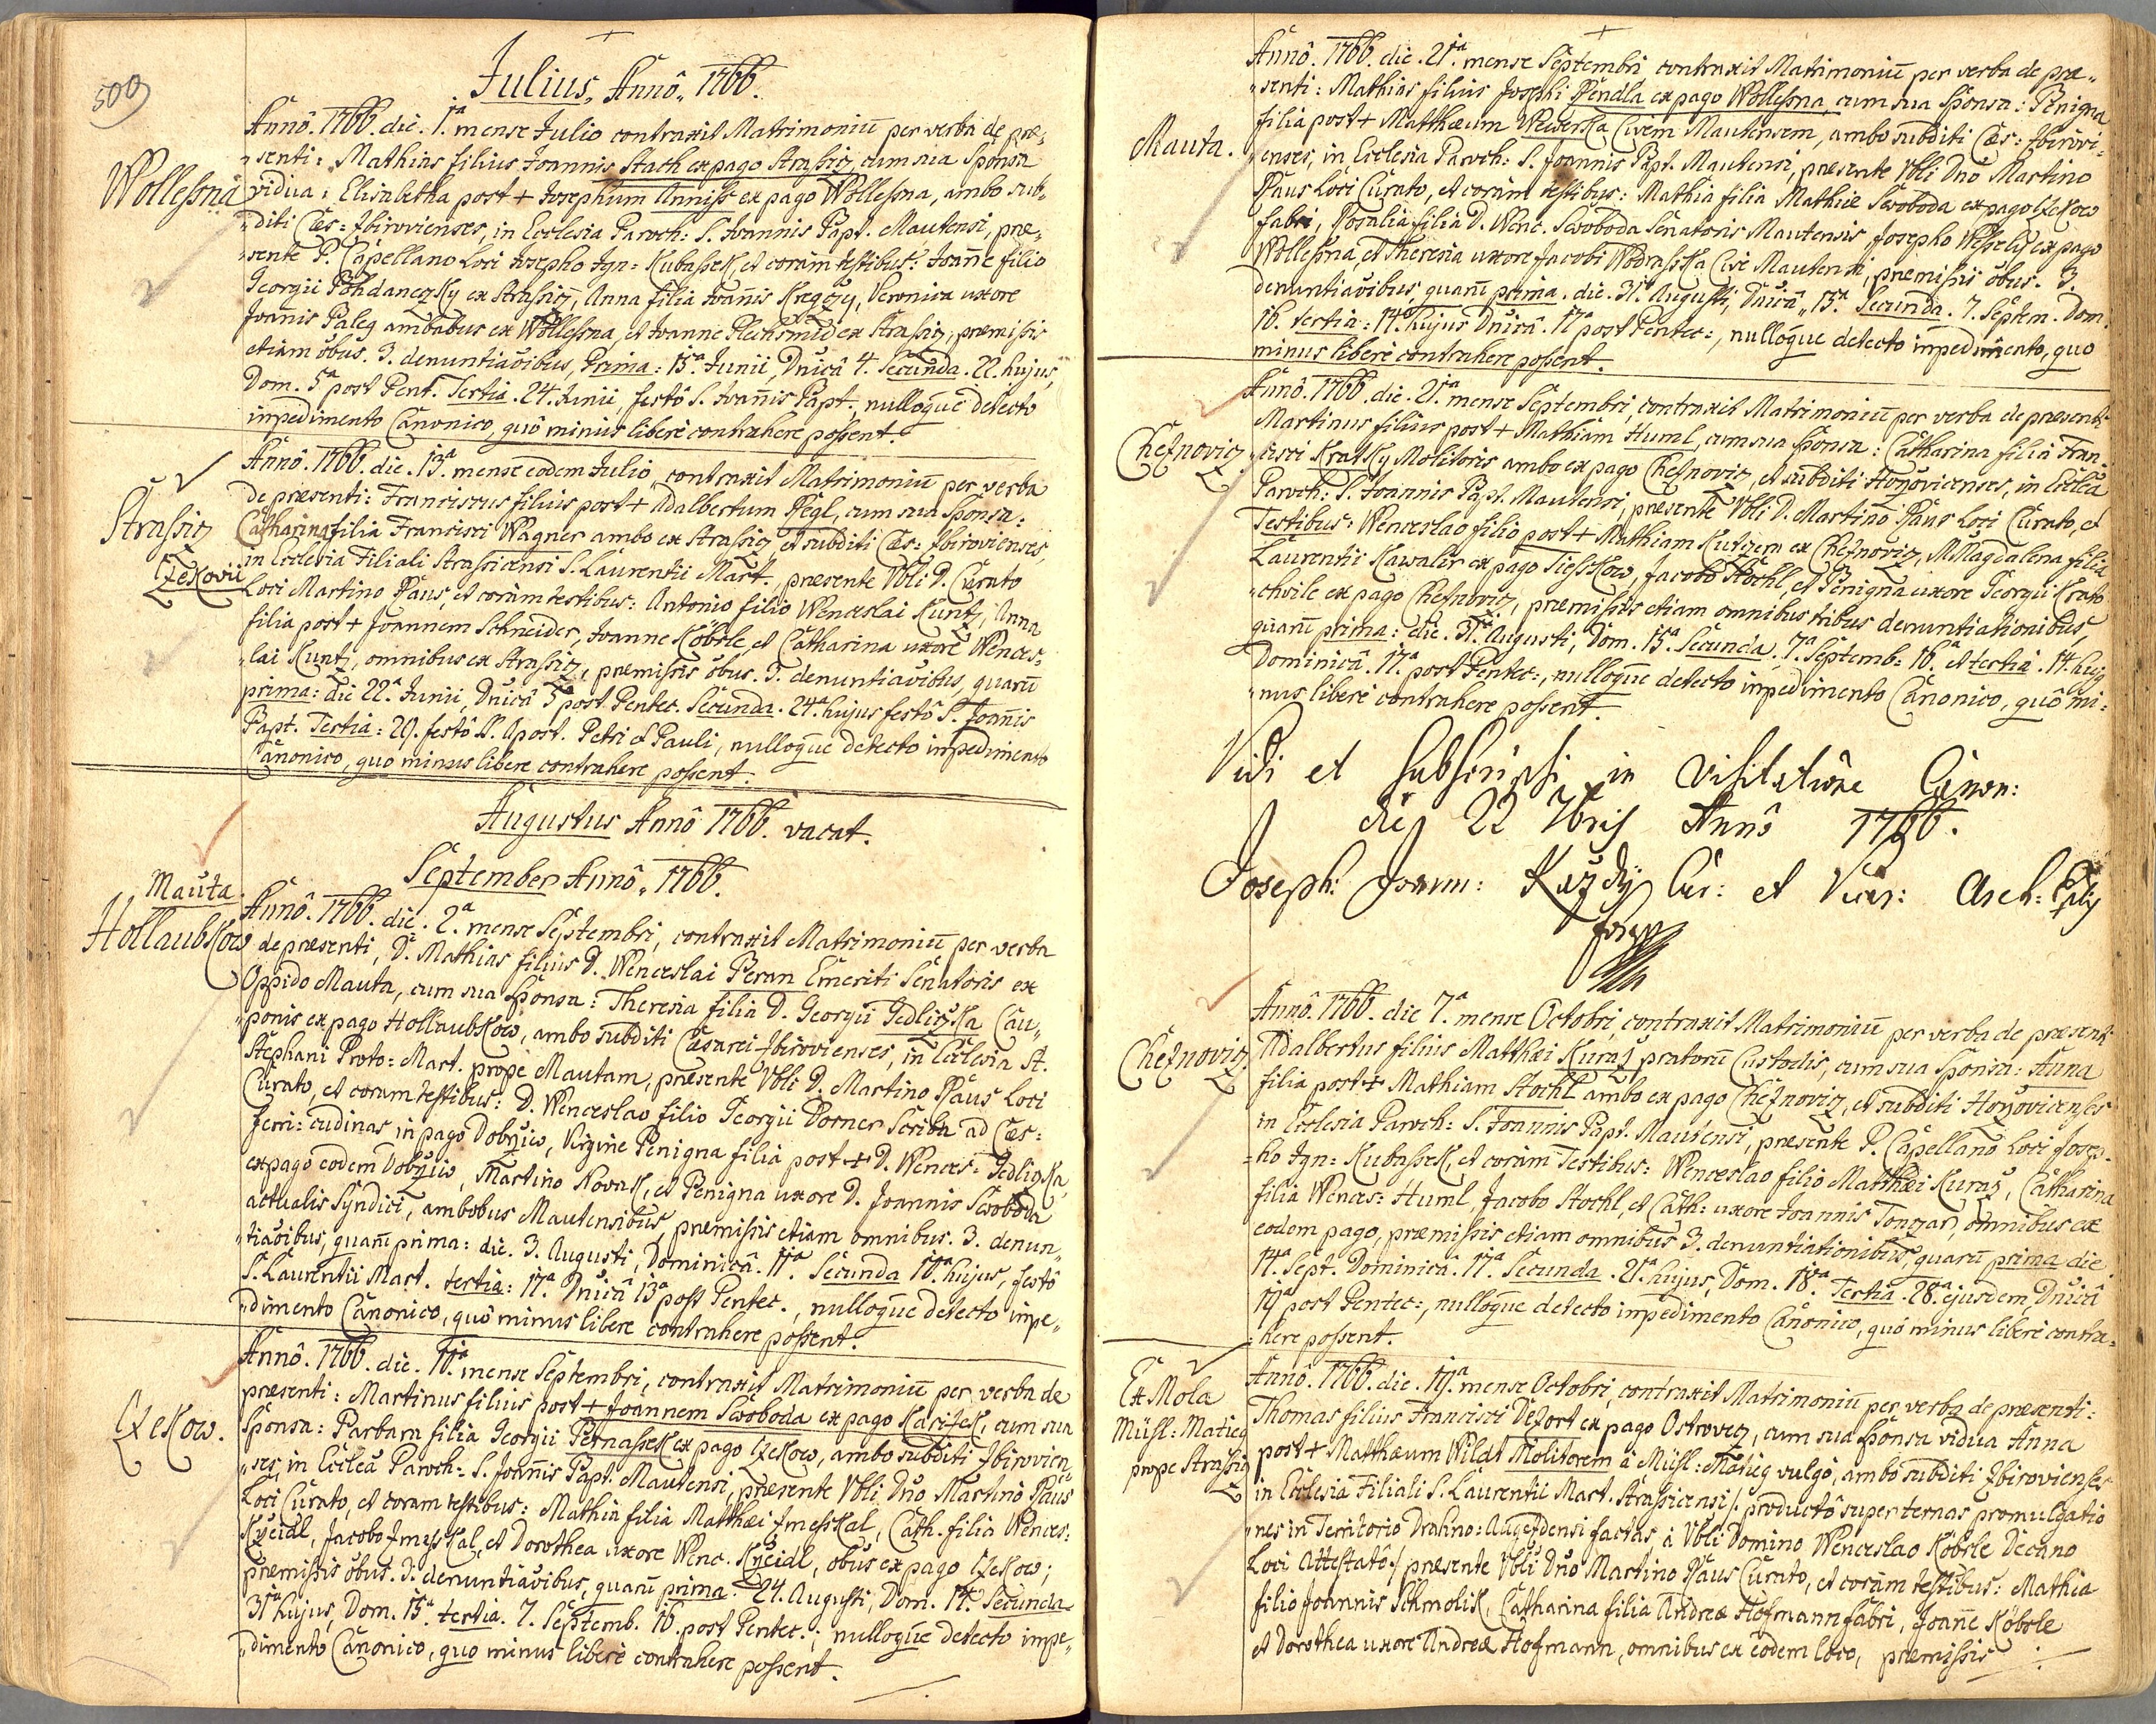 509
Julius, Annô, 1766.
Wollessna
Annô. 1766. die. 1ª. mense Julio contraxit Matrimoniū per verba de præ„
„senti: Mathias filius Joannis Stach ex pago Strassicz, cum sua Sponsa
vidua: Elisabetha post + Josephum Anniss ex pago Wollessna, ambo sub„
„diti Cæs: Zbirovienses, in Ecclesia Paroch: S. Joannis Bapt. Mautensi, præ„
„sente P. Capellano Loci Josepho Ign: Kubassek, et coràm testibus: Joanne filio
Georgii Pohdaneczky ex Strassicz, Anna filia Joannis Kregczy, Veronica uxore
Joannis Paleg ambabus ex Wollessna, et Joanne Plechsmid ex Strassicz, præmissis
etiam ōbus. 3. denuntiaōibus, Prima: 15ª. Junii, Dnicâ 4. Secunda. 22. hujus,
Dom. 5ª post Pent. Tertia. 24. Junii, festô S. Joannis Bapt., nulloque detecto
inpedimento Canonico, quô minùs liberè contrahere possent.
Strassicz
Czekovii
Annô. 1766. die. 13ª. mense eodem Julio, contraxit Matrimoniū per verba
de præsenti: Franciscus filius post + Adalbertum Pegl, cum sua Sponsa:
Catharina filia Francisci Wagner ambo ex Strassicz, et subditi Cæs: Zbirovienses,
in Ecclesia Filiali Strassicensi S. Laurentii Mart., præsente Vbli D. Curato
Loci Martino Päus, et coràm testibus: Antonio filio Wenceslai Kuntz, Anna
filia post + Joannem Schneider, Joanne Köbrle, et Catharina uxore Wences„
„lai Kuntz, omnibus ex Strassicz, præmissis ōbus. 3. denuntiaōibus, quarū
prima: die 22ª. Junii, Dnicâ 5 post Pentec. Secunda. 24ª. hujus festô S. Joannis
Bapt. Tertia: 29. festô SS. Apost. Petri et Pauli, nulloque detecto inpedimento
Canonico, quo minus libere contrahere possent.
Augustus Annô 1766. vacat.
September Annô, 1766.
Mauta.
Hollaubkow
Annô. 1766. die. 2ª. mense Septembri, contraxit Matrimoniū per verba
de præsenti, D. Mathias filius D. Wenceslai Beran Emeriti Senatoris ex
Oppido Mauta, cum sua Sponsa: Theresia filia D. Georgii Gedliczka Cau„
„ponis ex pago Hollaubkow, ambo subditi Cæsarei Zbirovienses, in Ecclesia St.
Stephani Proto: Mart. prope Mautam, præsente Vbli D. Martino Päus Loci
Curato, et coram testibus: D. Wenceslao filio Georgii Dorner Scriba ad Cæs:
ferri: cudinas in pago Dobrziw, Virgine Benigna filia post + D. Wences: Gedliczka
ex pago eodem Dobrziw, Martino Novak, et Benigna uxore D. Joannis Swoboda
actualis Syndici, ambobus Mautensibus, præmissis etiam omnibus. 3. denun„
„tiaōibus, quarū prima: die. 3. Augusti, Dominicâ. 11ª. Secunda 10ª. hujus, festô
S. Laurentii Mart. tertia: 17ª. Dnicâ 13ª post Pentec., nulloque detecto inpe„
„dimento Canonico, quô minus libere contrahere possent.
Czekow.
Annô. 1766. die. 16ª. mense Septembri, contraxit Matrimoniū per verba de
præsenti: Martinus filius post + Joannem Swoboda ex pago Karizek, cum sua
Sponsa: Barbara filia Georgii Bernassek ex pago Czekow, ambo subditi Zbirovien„
„ses, in Eccleâ Paroch: S. Joannis Bapt. Mautensi, præsente Vbli Dno Martino Päus
Loci Curato, et coram testibus: Mathia filia Matthæi Zmesskal, Cath. filia Wences:
Krzeidl, Jacobo Zmysskal, et Dorothea uxore Wenc. Krzeidl, ōbus ex pago Czekow;
præmissis ōbus. 3. denuntiaōibus, quarū prima. 24. Augusti, Dom. 14. Secunda
31ª hujus, Dom. 15ª. tertia. 7. Septemb. 16. post Pentec.; nulloque detecto impe„
„dimento Canonico, quo minus liberè contrahere possent.
Mauta.
Annô. 1766. die. 21ª. mense Septembri, contraxit Matrimoniū per verba de præ„
„senti: Mathias filius Josephi Pendla ex pago Wollessna, cum sua Sponsa: Benigna
filia post + Matthæum Wewerka Civem Mautensem, ambo subditi Cæs: Zbirovi„
„enses, in Ecclesia Paroch: S. Joannis Bapt. Mautensi, præsente Vbli Dno Martino
Päus Loci Curato, et coràm testibus: Mathia filia Mathiæ Swoboda ex pago Czekow
fabri, Rosalia filia D. Wenc. Swoboda Senatoris Mautensis, Josepho Wesselý ex pago
Wollessna, et Theresia uxore Jacobi Wodrasska Cive Mautensi, præmissis ōbus. 3.
denuntiaōibus, quarū prima. die. 31ª Augusti, Dnicâ, 15ª. Secunda. 7. Septem. Dom.
16. tertia: 14ª. hujus Dnicâ. 17ª post Pentec:, nulloque detecto inpedimento, quo
minus liberè contrahere possent.
Cheznovicz.
Annô. 1766. die. 21ª. mense Septembri, contraxit Matrimoniū per verba de præsenti
Martinus filius post + Mathiam Huml, cum sua Sponsa: Catharina filia Fran„
„cisci Kratky Molitoris ambo ex pago Cheznovicz, et subditi Horzovicenses, in Eccleâ
Paroch: S. Joannis Bapt. Mautensi, præsente Vbli D. Martino Päus Loci Curato, et
Testibus: Wenceslao filio post + Mathiam Kutzera ex Cheznovicz, M Magdalena filia
Laurentii Kawalir ex pago Tiesskow, Jacobo Stochl, et Benigna uxore Georgii Krato„
„chvile ex pago Cheznovicz, præmissis etiam omnibus tribus denuntiationibus,
quarū prima: die. 31ª. Augusti, Dom. 15ª. Secunda. 7ª. Septemb: 16ª. et tertia. 14. hujg
Dominicâ. 17ª. post Pentec:, nulloque detecto inpedimento Canonico, quô mi„
„nus liberè contrahere possent.
Vidi et subscripsi in visitatione Canon:
die 22 7bris Annô 1766.
Joseph: Joann: Kuzdy Cur: et Vicar: Arch: Eplis
Cheznovicz.
Annô. 1766. die 7ª. mense Octobri, contraxit Matrimoniū per verba de præsenti
Adalbertus filius Matthæi Kuraz pratorū Custodis, cum sua Sponsa: Anna
filia post + Mathiam Stochl ambo ex pago Cheznovicz, et subditi Horzovicenses
in Ecclesia Paroch: S. Joannis Bapt. Mautensi, præsente P. Capellano Loci Josep„
„ho Ign: Kubassek, et coràm Testibus: Wenceslao filio Matthæi Kuraz, Catharina
filia Wences: Huml, Jacobo Stochl, et Cath: uxore Joannis Tonczar, omnibus ex
eodem pago, præmissis etiam omnibus 3. denuntiationibus, quarū prima die
14ª. Sept. Dominicâ. 17ª. Secunda. 21ª. hujus, Dom. 18ª. Tertia. 28ª. ejusdem, Dnicâ
19ª post Pentec:, nulloque detecto inpedimento Canonico, quô minus liberè contra„
„here possent.
Ex Mola
Müsl: Matieg
prope Strassicz
Annô. 1766. die. 19ª. mense Octobri, contraxit Matrimoniū per verba de præsenti:
Thomas filius Francisci Dezort ex pago Ostrovecz, cum sua Sponsa vidua Anna
post + Matthæum Wildt Molitorem à Müsl: Matieg vulgò, ambo subditi Zbirovienses
in Ecclesia Filiali S. Laurentii Mart. Strassicensi /: productô super ternas promulgatio
„nes in Territorio Drahno: Augezdensi factas, à Vbli Domino Wenceslao Köbrle Decano
Loci Attestatô :/ præsente Vbli Dno Martino Päus Curato, et coràm testibus: Mathia
filio Joannis Schmolik, Catharina filia Andreæ Hofmann fabri, Joanne Köbrle
et Dorothea uxore Andreæ Hofmann, omnibus ex eodem loco, præmissis